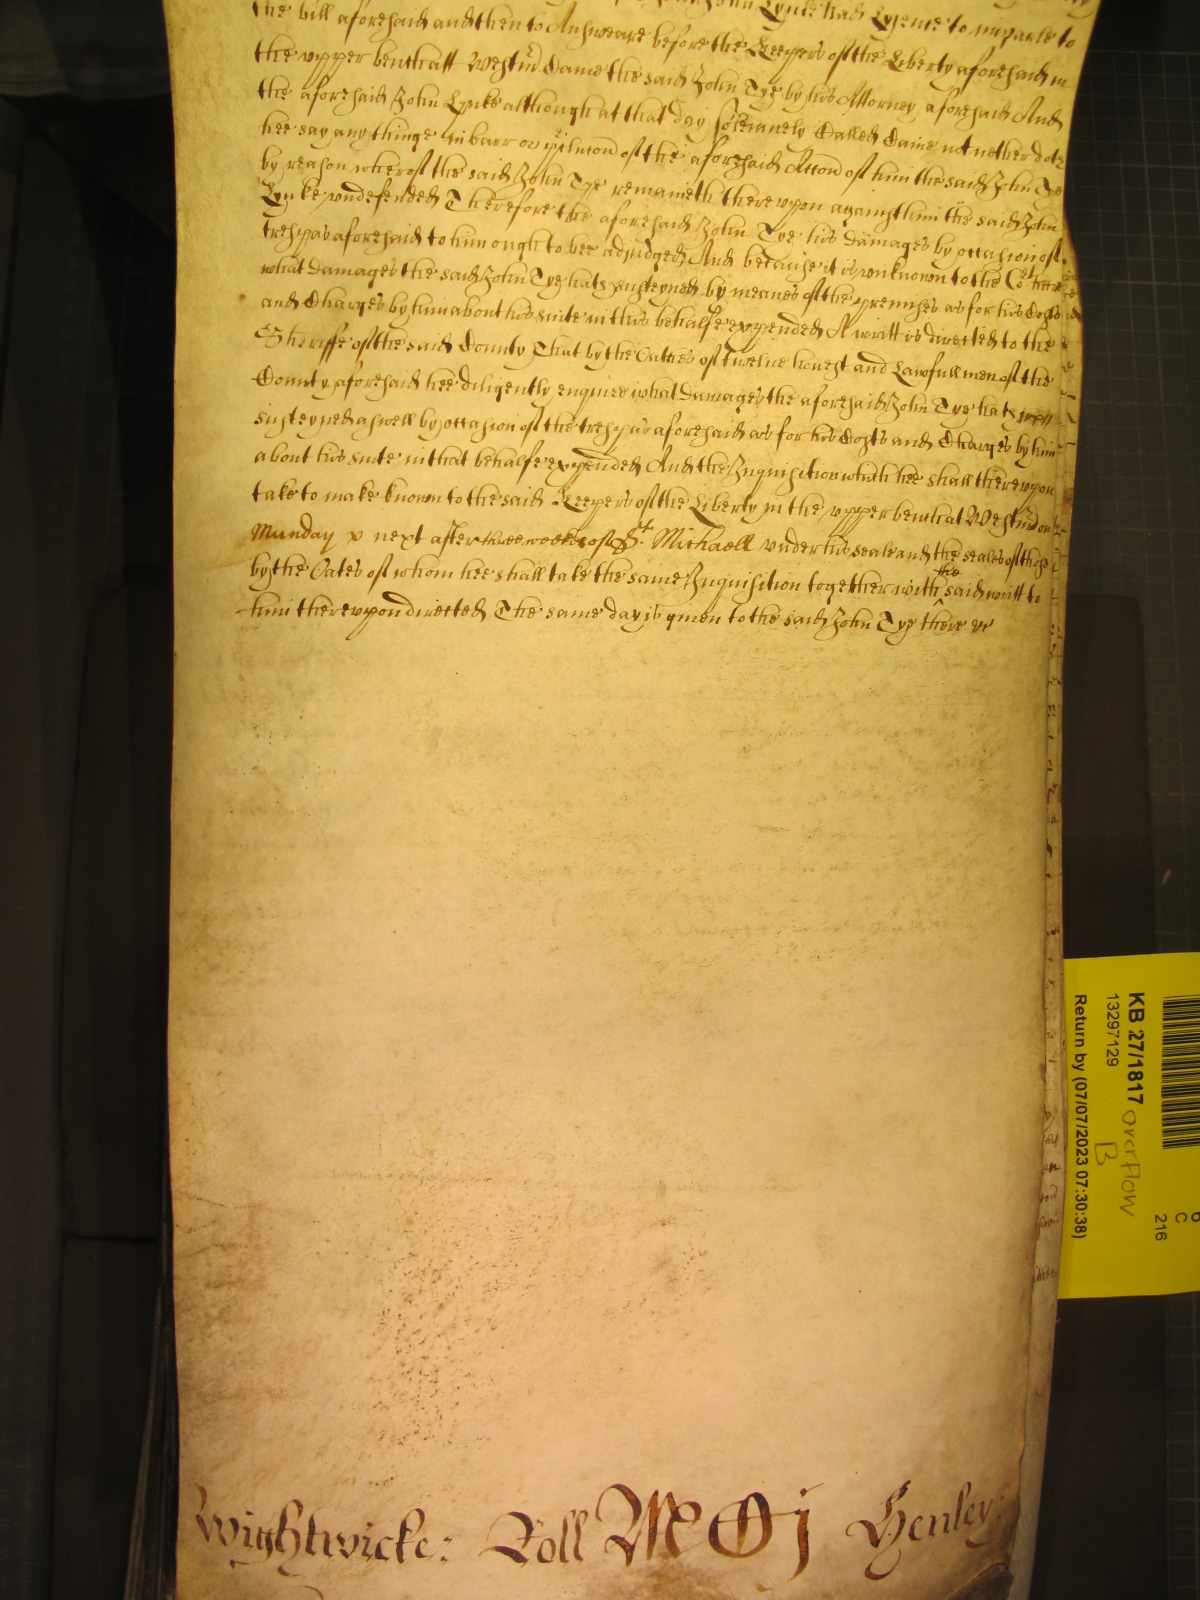 the bill aforesaid and then to Answeare before the Keepers of the Liberty aforesaid in
the vpper bench att Westmr Came the said John Tye by his Attorney aforesaid And
the aforesaid John Lynke although at that day solemnely Called Came not nether doth
hee say any thinge in barr or of the aforesaid Accon of him the said John Tye
by reason wherof the said John Tye remaineth therevpon against him the said John
Lynke vndefended Therefore the aforesaid John Tye his damages by occasion of
trespas aforesaid to him ought to bee adjudged And because it is vnknown to the Cort here
what damages the said John Tye hath susteyned by meanes of the premises as for his Costs
and Charges by him about his suite in this behalfe expended A writt is directed to the
Sheriffe of the said County That by the Oathes of twelue honest and Lawfull men of the
County aforesaid hee diligently enquire what damages the aforesaid John Tye hath
susteyned aswell by occasion of the trespas aforesaid as for his Costs and Charges by him
about his suite in that behalfe expended And the Inquisition which hee shall therevpon
take to make known to the said Keepers of the Liberty in the vpper bench at Westmr on
Munday x next after three weekes of St. Michaell vnder his seale and the seales of those
by the Oates of whom hee shall take the same Inquisition together with the said writt to
him therevpon directed The same day is giuen to the said John Tye there &c
Wightwicke: Roll MCCj Henley:
KB 27/1817 overflow
13297129 B
Return by (07/07/2023 07:30:38)
6
C
216